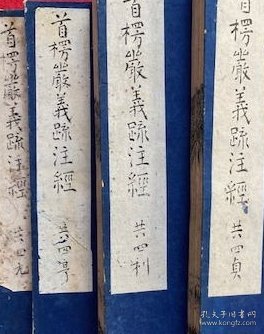 首楞嚴義疏注經 共四元
首楞嚴義疏注經 共四亨
首楞嚴義疏注經 共四利
首楞嚴義疏注經 共四貞
孔夫子旧书网